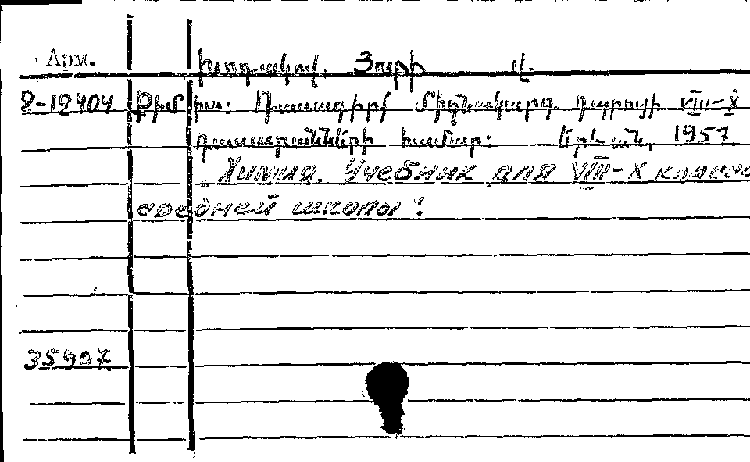 Арм.
2-12404 Քիմիա: Դասագիրք միջնակարգ դպրոցի VIII-X
դասարանների համար: Երևան, 1957
Химия. Учебник для VIII-X классо
средней школы:
35907